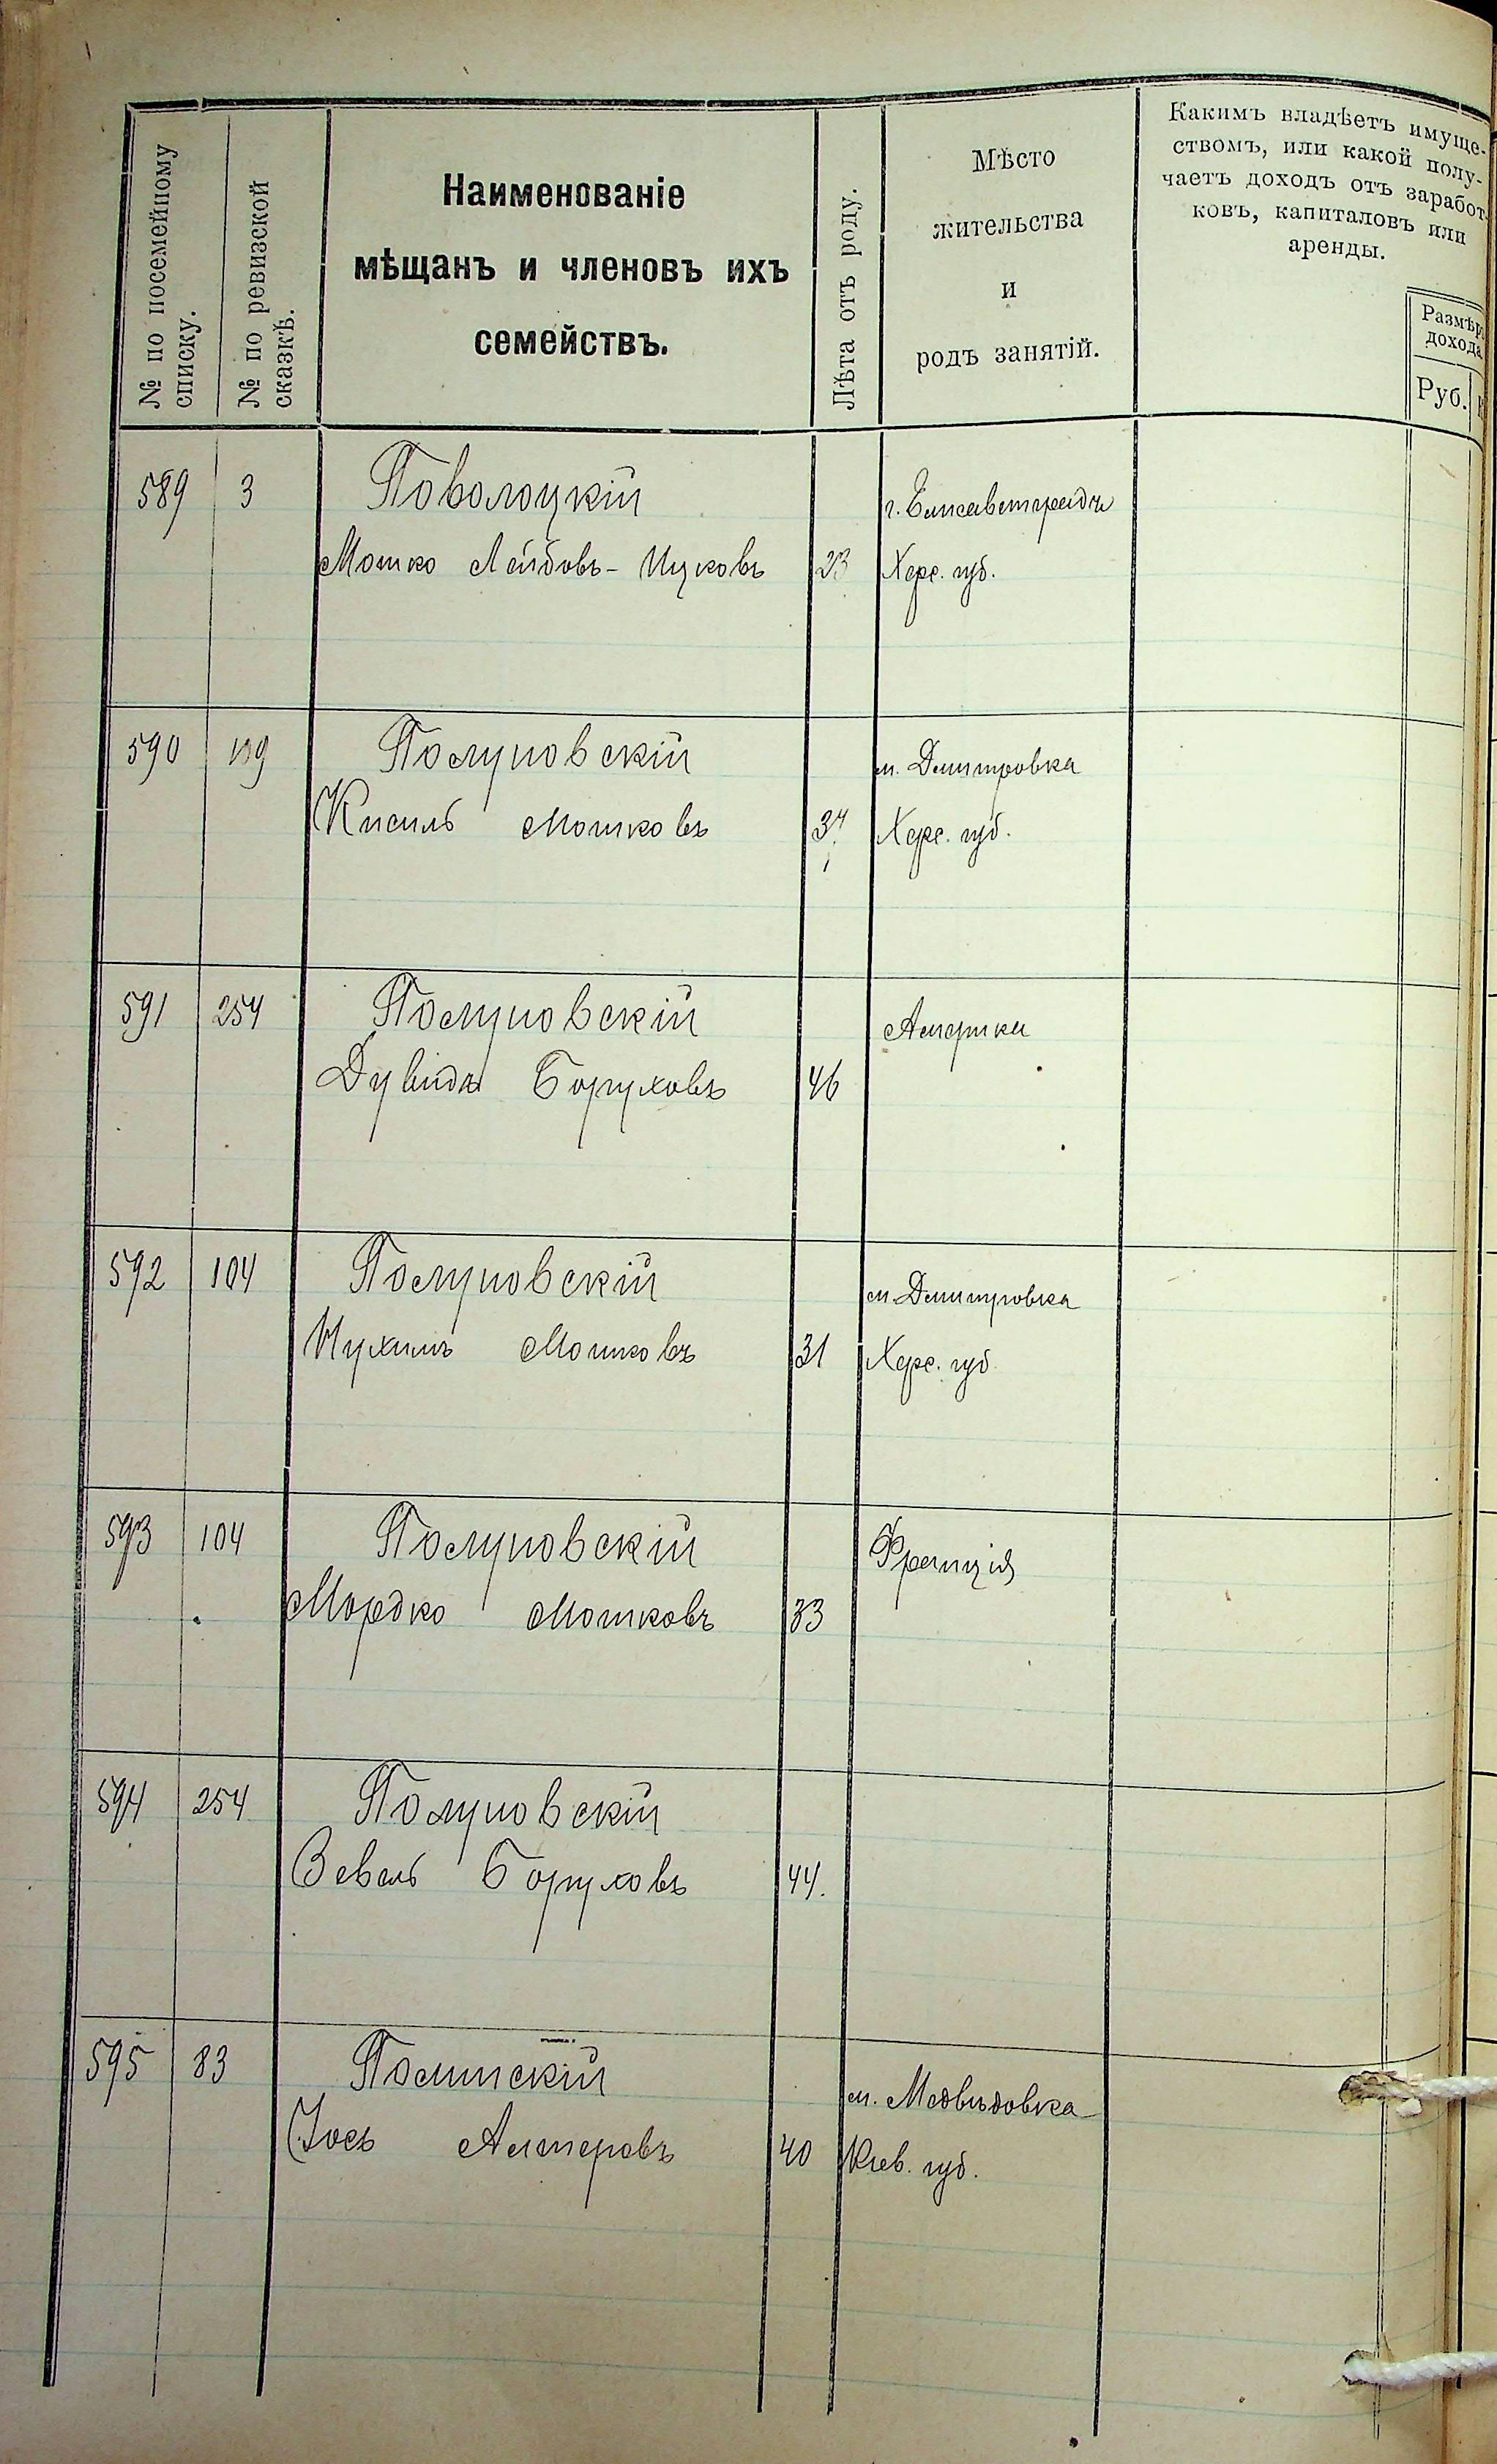 № по посемейному
списку.
№ по ревизской
сказкѣ.
Наименованіе
мѣщанъ и членовъ ихъ
семействъ.
Лѣта отъ роду.
Мѣсто
жительства
и
родъ занятій.
Какимъ владѣетъ имуще-
ствомъ, или какой полу-
чаетъ доходъ отъ заработ-
ковъ, капиталовъ или
аренды.
Размѣръ
дохода
Руб.
589 3 Поволоцкій г. Елисаветградъ
Мошко Лейбовъ-Ицковъ 23 Херс. губ.
590 Полуновскій м. Дмитровка
Кисиль Мошковъ 34 Херс. губ.
591 254 Полуновскій Америка
Дувидъ Боруховъ 46
592 104 Полуновскій м. Дмитровка
Нухимъ Мошковъ 31 Херс. губ.
593 104 Полуновскій Франція
Мордко Мошковъ 33
594 254 Полуновскій
Зевель Боруховъ 44.
595 83 Полинскій м. Медвѣдовка
Іось Алтеровъ 40 Кіев. губ.